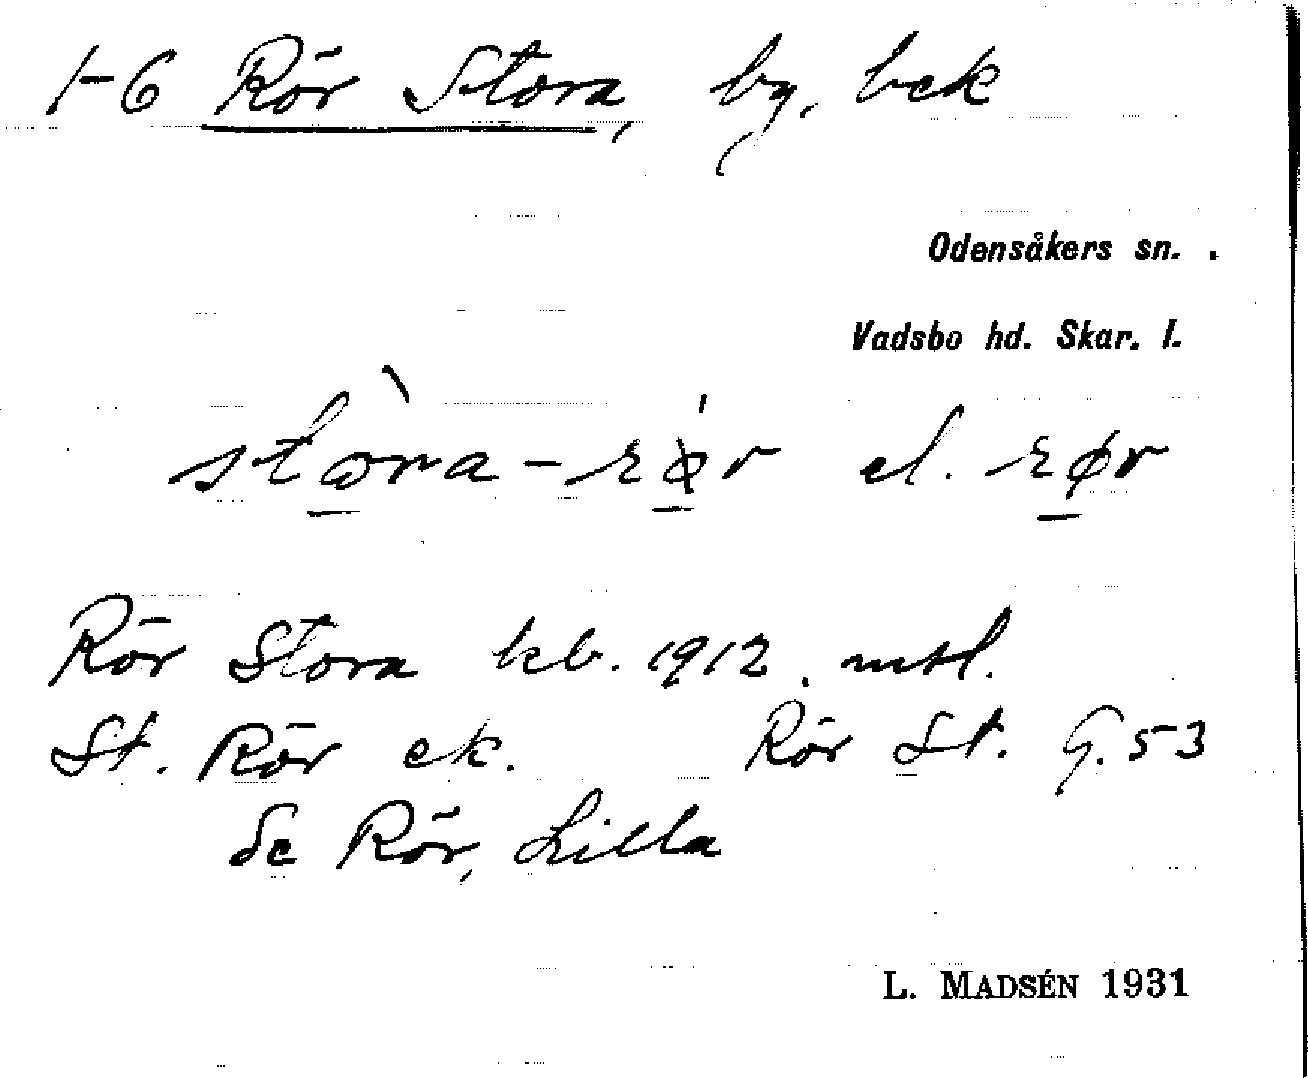 1-6 Rör Stora, by, bek
Odensåkers sn. .
Vadsbo hd. Skar. l.
stòra-rǿr el. rør
Rör Stora kb. 1912. mtl.
St. Rör ek. Rör St. G. 53
Se Rör, Lilla
L. MADSÉN 1931